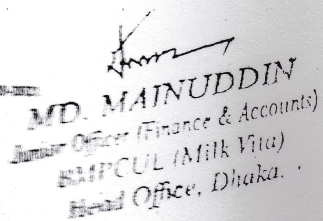 MD. MAINUDDIN
Junior Officer (Finance & Accounts)
BMPCUL (Milk Vita)
Head Office, Dhaka.